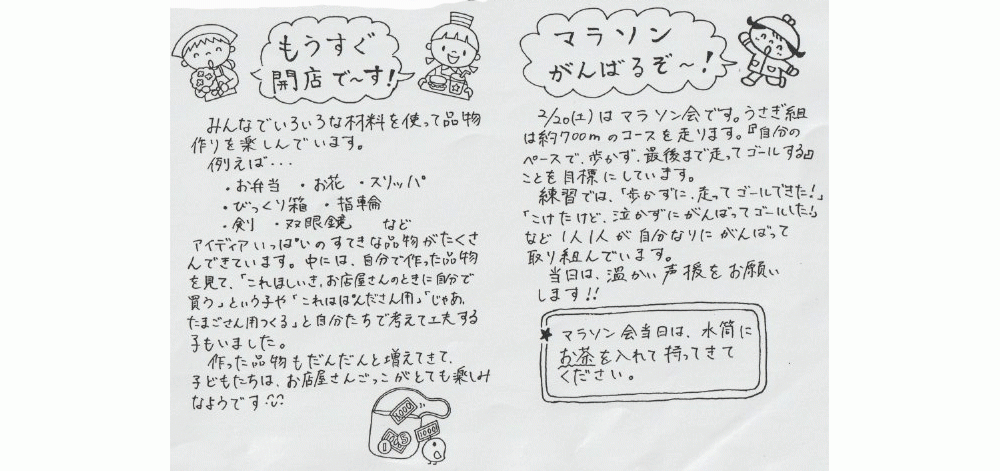 もうすぐ
開店で〜す!
みんなでいろいろな材料を使って品物
作りを楽しんでいます。
例えば・・・
・お弁当 ・お花 ・スリッパ
・びっくり箱 ・指輪
・剣 ・双眼鏡 など
アイディアいっぱいのすてきな品物がたくさ
んできています。中には、自分で作った品物
を見て、「これほしいき、お店屋さんのときに自分で
買う」という子や「これはぱんださん用」「じゃあ、
たまごさん用つくる」と自分たちで考えて工夫する
子もいました。
作った品物もだんだんと増えてきて、
子どもたちは、お店屋さんごっこがとても楽しみ
なようです
5000
1000
マラソン
がんばるぞ〜!
2/20(土)はマラソン会です。うさぎ組
は約700mのコースを走ります。『自分の
ペースで、歩かず、最後まで走ってゴールする』
ことを目標にしています。
練習では、「歩かずに、走ってゴールできた!」
「こけたけど、泣かずにがんばってゴールした!」
など1人1人が自分なりにがんばって
取り組んでいます。
当日は、温かい声援をお願い
します!!
★マラソン会当日は、水筒に
お茶を入れて持ってきて
ください。